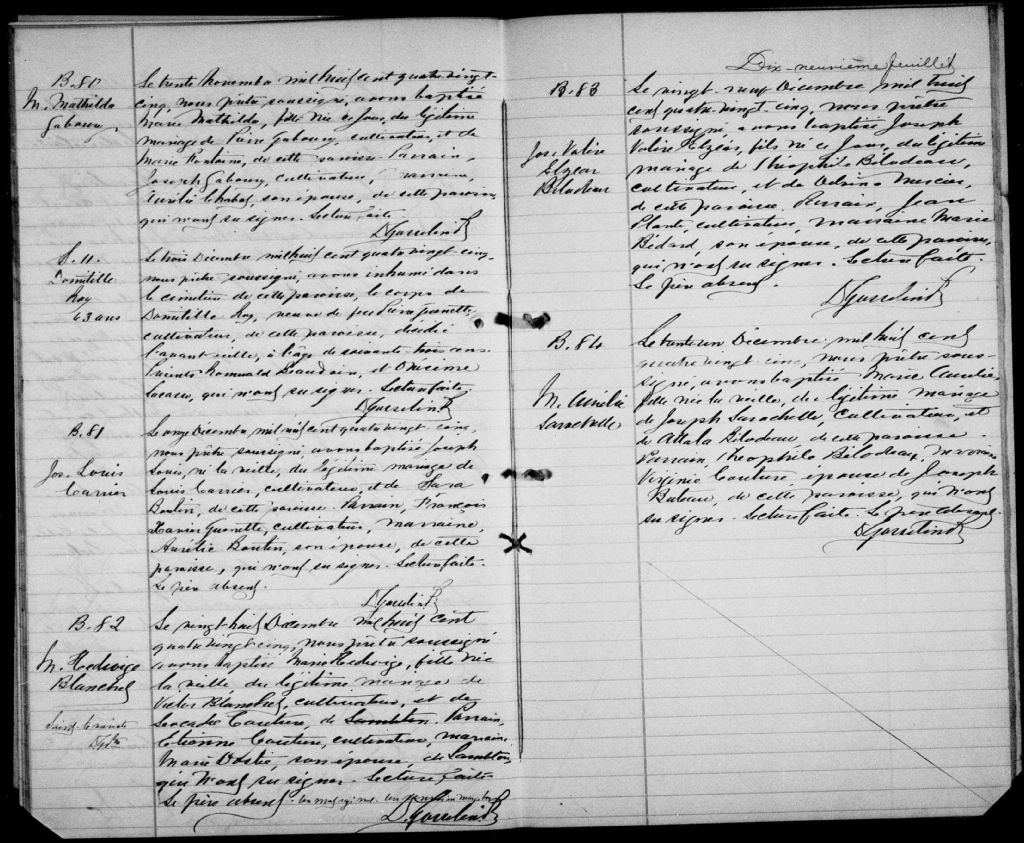 B. 80
M. Mathilda
Gaboury
Le trente Novembre mil huit cent quatre vingt-
cinq, nous prêtre soussigné, avons baptisé
Marie Mathilda, fille née ce jour, du légitime
mariage de Pierre Gaboury, cultivateur, et de
Marie Fontaine, de cette paroisse. Parrain,
Joseph Gaboury, cultivateur, marraine,
son épouse, de cette paroisse,
qui n'ont su signer. Lecture faite.
D Gosselin Ptre
S. 11.
Domitille
Roy
63 ans
Le trois Décembre mil huit cent quatre vingt cinq,
nous prêtre soussigné, avons inhumé dans
le cimetière de cette paroisse, le corps de
Domitille Roy, veuve de feu Pierre
cultivateur, de cette paroisse, décédée
l'avant veille, à l'âge de soixante trois ans.
Présents Romuald Beaudoin, et Onésime
qui n'ont su signer. Lecture faite.
D Gosselin Ptre
B. 81
Jos. Louis
Carrier
Le onze Décembre mil huit cent quatre vingt cinq,
nous prêtre soussigné, avons baptisé Joseph
Louis, né la veille, du légitime mariage de
Louis Carrier, cultivateur, et de Sara
Boutin, de cette paroisse. Parrain, François
Xavier Goulette, cultivateur, marraine,
Aurélie Boutin, son épouse, de cette
paroisse, qui n'ont su signer. Lecture faite.
Le père absent.
D Gosselin Ptre
B. 82
M. Hedwige
Blanchet
Le vingt huit Décembre mil huit cent
quatre vingt cinq, nous prêtre soussigné
avons baptisé Marie Hedwige, fille née
la veille, du légitime mariage de
Victor Blanchet, cultivateur, et de
Léocadie Couture, de Lambton. Parrain,
Etienne Couture, cultivateur, marraine
Marie Dostie, son épouse, de Lambton,
qui n'ont su signer. Lecture faite.
Le père absent.
D. Gosselin Ptre
Dix-neuvième feuillet
B. 83
Jos. Valère
Elzéar
Bilodeau
Le vingt-neuf Décembre mil huit
cent quatre vingt cinq, nous prêtre
soussigné, avons baptisé Joseph
Valère Elzéar, fils né ce jour, du légitime
mariage de Théophile Bilodeau,
cultivateur, et de Odina Mercier,
de cette paroisse. Parrain, Jean
Plante, cultivateur, marraine Marie
Bédard son épouse, de cette paroisse,
qui n'ont su signer. Lecture faite.
Le père absent.
D Gosselin Ptre
B. 84
M. Aurélie
Larochelle
Le trente un Décembre, mil huit cent
quatre vingt cinq, nous prêtre sous-
signé, avons baptisé Marie Aurélie,
fille née la veille, du légitime mariage
de Joseph Larochelle, cultivateur, et
de Attala Bilodeau, de cette paroisse.
Parrain, Théophile Bilodeau, marraine
Virginie Couture, épouse de Joseph
Buteau, de cette paroisse, qui n'ont
su signer. Lecture faite. Le père absent.
D Gosselin Ptre